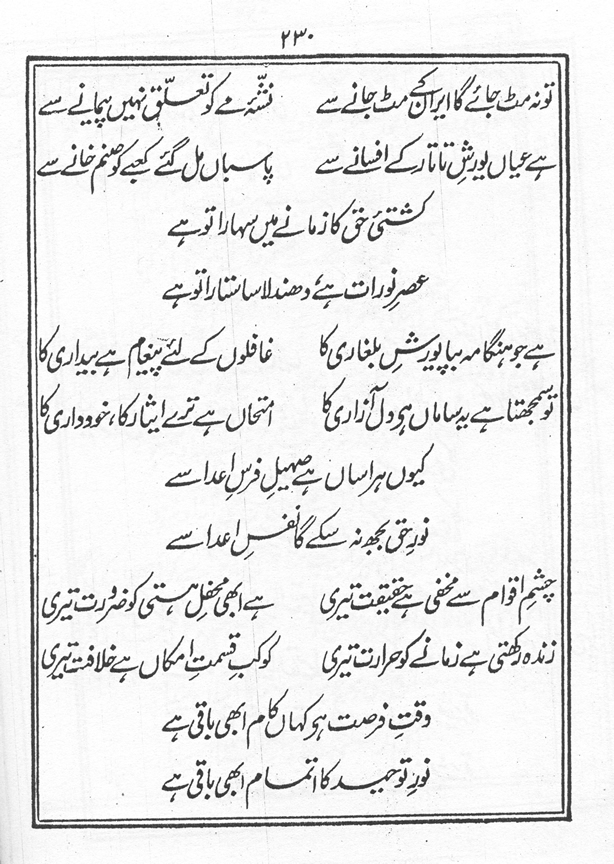 ۲۳۰
تو نہ مٹ جائے گا ایران کے مٹ جانے سے نشّۂ مے کو تعلّق نہیں پیمانے سے
ہے عیاں یورشِ تاتار کے افسانے سے پاسباں مل گئے کعبے کو صنم خانے سے
کشتئ حق کا زمانے میں سہارا تو ہے
عصرِ نو رات ہے، دھندلا سا ستارا تو ہے
ہے جو ہنگامہ بپا یورشِ بلغاری کا غافلوں کے لئے پیغام ہے بیداری کا
تو سمجھتا ہے یہ ساماں ہے دل آزاری کا امتحاں ہے ترے ایثار کا، خود داری کا
کیوں ہراساں ہے صہیلِ فرسِ اعدا سے
نورِ حق بجھ نہ سکے گا نفسِ اعدا سے
چشمِ اقوام سے مخفی ہے حقیقت تیری ہے ابھی محفلِ ہستی کو ضرورت تیری
زندہ رکھتی ہے زمانے کو حرارت تیری کوکبِ قسمتِ امکاں ہے خلافت تیری
وقتِ فرصت ہے کہاں کام ابھی باقی ہے
نورِ توحید کا اتمام ابھی باقی ہے